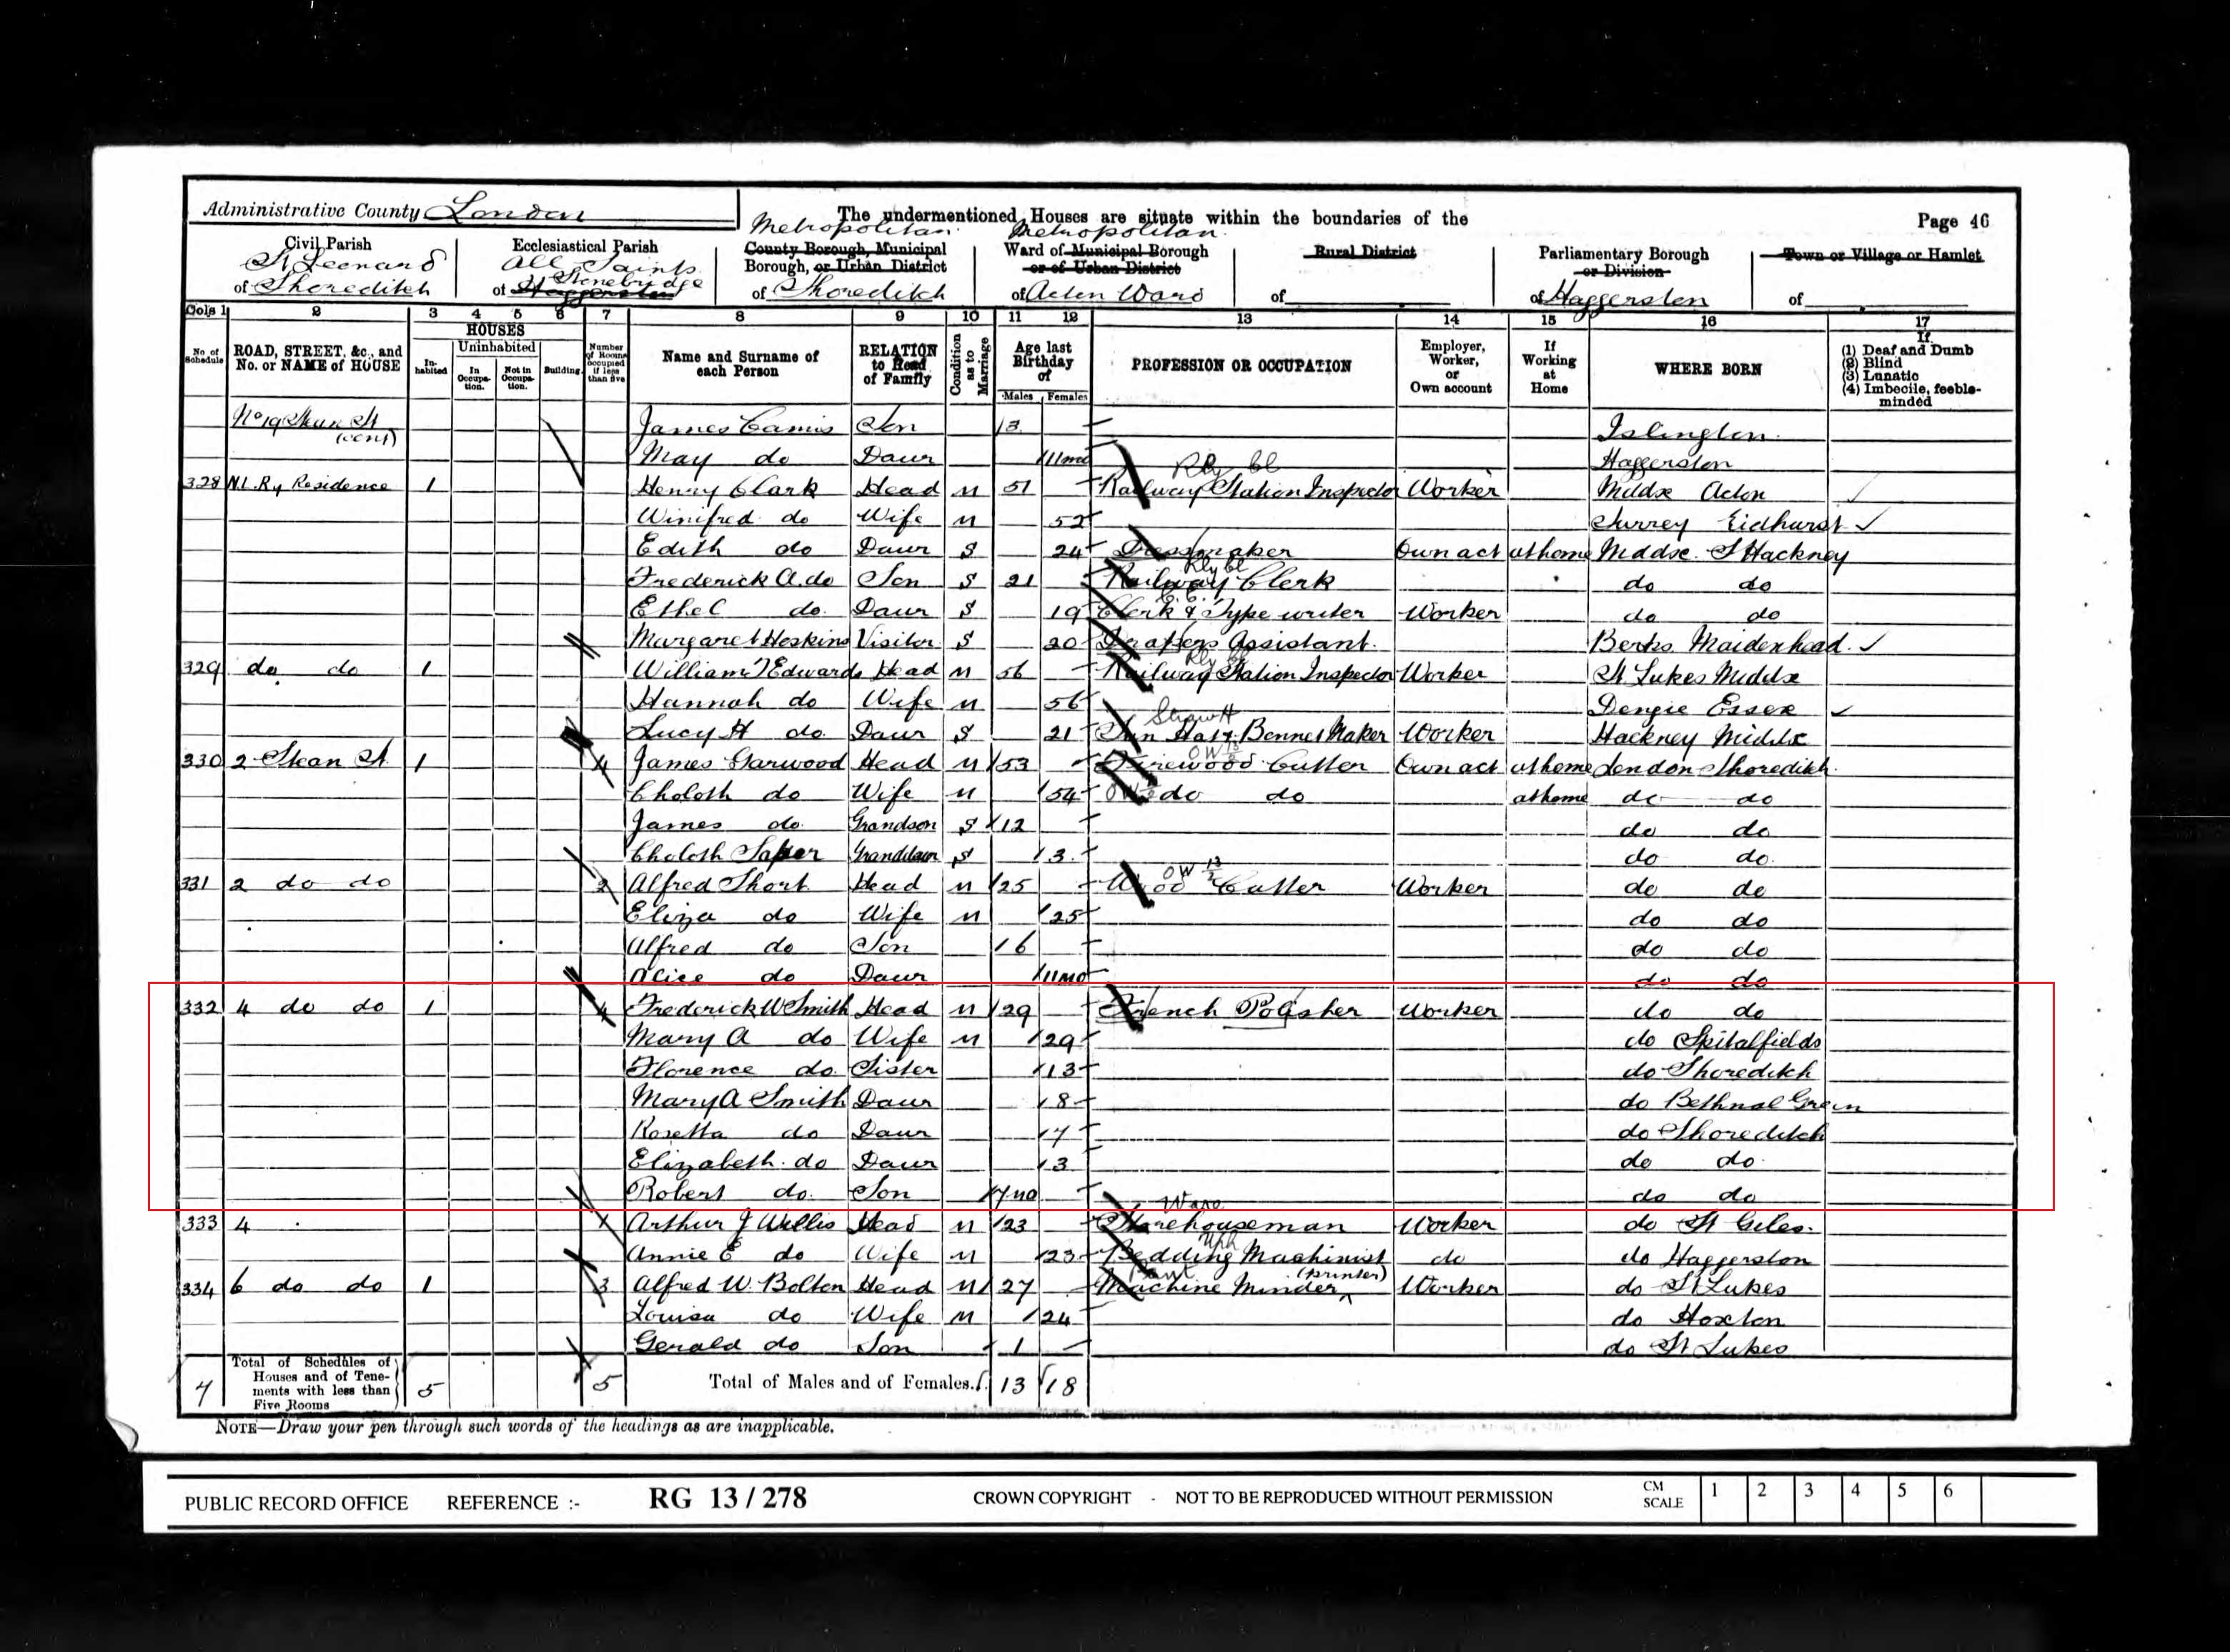 Administrative County London
The undermentioned Houses are situate within the boundaries of the
Page 46
Civil Parish
of St Leonard Shoreditch
Ecclesiastical Parish
of All Saints Stonebridge Haggerston
Metropolitan
County Borough, Municipal
Borough, or Urban District
of Shoreditch
Metropolitan
Ward of Municipal Borough
or of Urban District
of Acton Ward
Rural District
of
Parliamentary Borough
or Division
of Haggerston
Town or Village or Hamlet
of
Cols 1 2 3 4 5 6 7 8 9 10 11 12 13 14 15 16 17
No of Schedule
ROAD, STREET, &c., and No. or NAME of HOUSE
HOUSES
In-habited
Uninhabited
In Occupa-tion.
Not in Occupa-tion.
Building.
Number of Rooms occupied if less than five
Name and Surname of each Person
RELATION to Head of Family
Condition as to Marriage
Age last Birthday of
Males Females
PROFESSION OR OCCUPATION
Employer, Worker, or Own account
If Working at Home
WHERE BORN
If
(1) Deaf and Dumb
(2) Blind
(3) Lunatic
(4) Imbecile, feeble-minded
No 19 Skean St (cont) James Camis Son 3 Islington
May do Daur 11mo Haggerston
Rly cl
328 N.L.Ry Residence 1 Henry Clark Head M 51 Railway Station Inspector Worker Middx Acton
Winifred do Wife M 52 Surrey Lidhurst
Edith do Daur S 24 Dressmaker Own act at home Middsx S Hackney
Rly cl
Frederick A. do Son S 21 Railway Clerk do do
Ethel do Daur S 19 Clerk & Type writer Worker do do
Margaret Hoskins Visitor S 20 Drapers Assistant. Berks Maidenhead.
Rly cl
329 do do 1 William T Edwards Head M 56 Railway Station Inspector Worker St Lukes Middlx
Hannah do Wife M 56 Dengie Essex
Straw H
Lucy H do Daur S 21 Hat & Bonnet Maker Worker Hackney Middlx
330 2 Skean St 1 4 James Garwood Head M 53 Firewood Cutter Own act at home London Shoreditch
Choloth do Wife M 54 do do at home do do
James do Grandson S 12 do do
Choloth Granddaur S 3 do do
OW 13/2
331 2 do do 2 Alfred Short Head M 25 Wood Cutter Worker do do
Eliza do Wife M 25 do do
Alfred do Son 6 do do
Alice do Daur 11mo do do
332 4 do do 1 4 Frederick W Smith Head M 29 French Polisher Worker do do
Mary A do Wife M 29 do Spitalfields
Florence do Sister 13 do Shoreditch
Mary A Smith Daur 8 do Bethnal Green
Rosetta do Daur 7 do Shoreditch
Elizabeth do Daur 3 do do
Robert do Son 7mo do do
Ware
333 4 Arthur J Willis Head M 23 Storehouseman Worker do St Giles
Uph
Annie E do Wife M 23 Bedding Machinist do do Haggerston
Print (printer)
334 6 do do 1 3 Alfred W. Bolton Head M 27 Machine Minder Worker do St Lukes
Louisa do Wife M 24 do Hoxton
Gerald do Son 1 do St Lukes
7 Total of Schedules of Houses and of Tene-ments with less than Five Rooms 5 5 Total of Males and of Females.. 13 18
NOTE—Draw your pen through such words of the headings as are inapplicable.
PUBLIC RECORD OFFICE REFERENCE :- RG 13 / 278 CROWN COPYRIGHT - NOT TO BE REPRODUCED WITHOUT PERMISSION CM SCALE 1 2 3 4 5 6